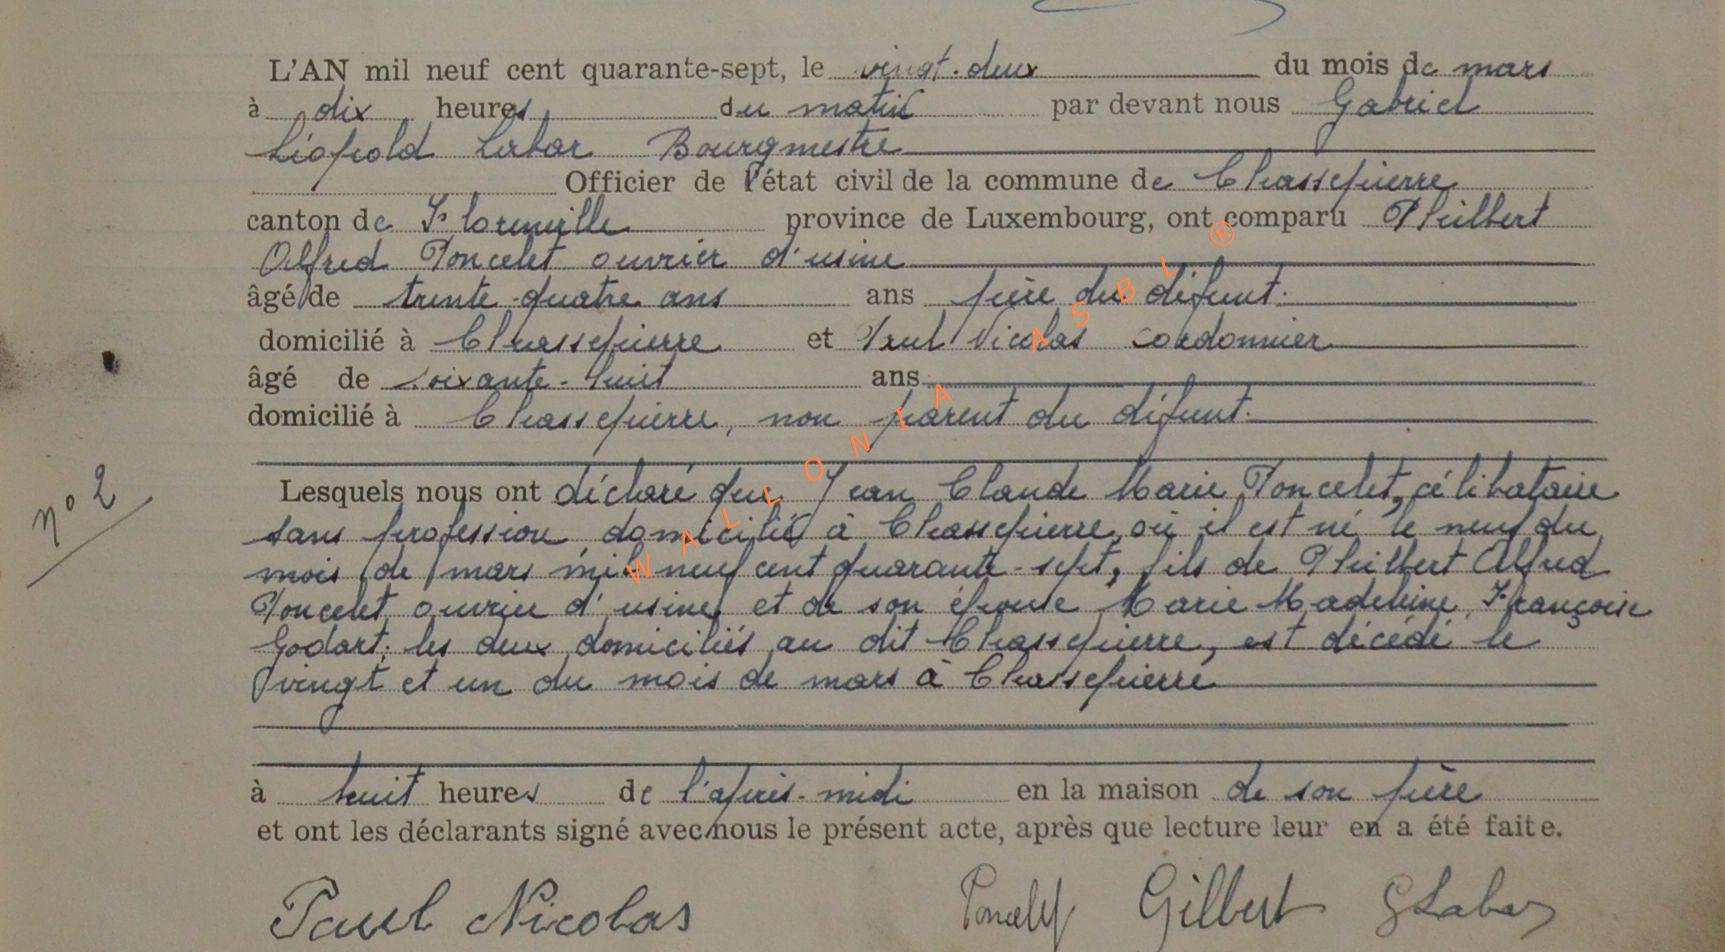 L'AN mil neuf cent quarante-sept, le vingt-deux du mois de mars
à dix heures du matin par devant nous Gabriel
Léopold Labar Bourgmestre
Officier de l'état civil de la commune de Chassepierre
canton de Florenville province de Luxembourg, ont comparu Philbert
Alfred Poncelet ouvrier d'usine
âgé de trente-quatre ans ans père du défunt.
domicilié à Chassepierre et Paul Nicolas cordonnier
âgé de soixante-huit ans
domicilié à Chassepierre, non parent du défunt.
Lesquels nous ont déclaré que Jean Claude Marie Poncelet, célibataire
n° 2
sans profession, domicilié à Chassepierre, où il est né le neuf du
mois de mars mil neuf cent quarante-sept, fils de Philbert Alfred
Poncelet ouvrier d'usine, et de son épouse Marie Madeleine Françoise
Godart, les deux domiciliés au dit Chassepierre, est décédé le
vingt et un du mois de mars à Chassepierre
à huit heures de l'après-midi en la maison de son père
et ont les déclarants signé avec nous le présent acte, après que lecture leur en a été faite.
Paul Nicolas Poncelet Gilbert GLabar
WALLONIA ASBL ®